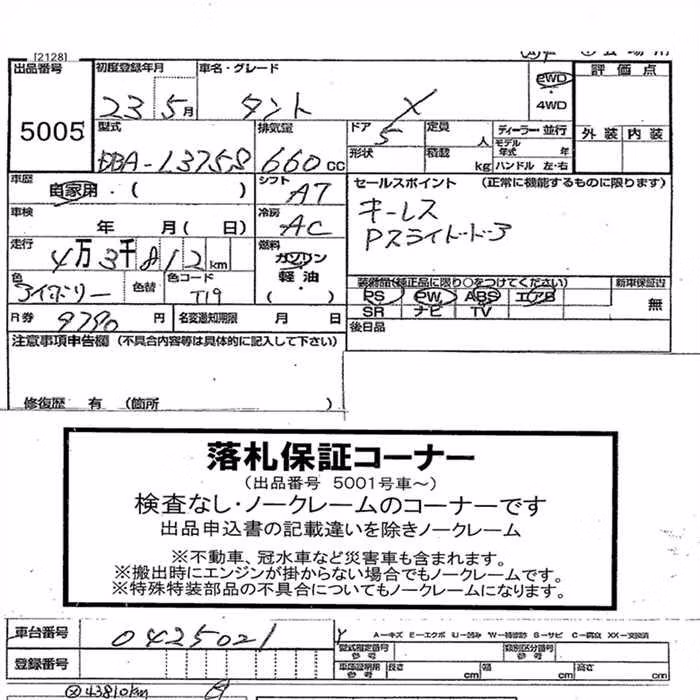 [2128]
出品番号 初度登録年月 車名・グレード 2WD 評価点
5005 23 5月 タント X 4WD
型式 排気量 ドア 定員 人 ディーラー・並行 外装 内装
DBA-L375S 660 CC 5 モデル年式 年
形状 積載 kg ハンドル 左・右
車歴 自家用・( ) シフト AT セールスポイント (正常に機能するものに限ります)
車検 年 月( 日) 冷房 AC キーレス
走行 4万3千812km 燃料 ガソリン Pスライドドア
色 アイボリー 色替 色コード T19 軽油 ( )
装備品(純正品に限り○をつけてください) 新車保証書
PS PW ABS エアB 無
SR ナビ TV
R券 9790円 名変通知期限 月 日 後日品
注意事項申告欄 (不具合内容等は具体的に記入して下さい)
修復歴 有 (箇所 )
落札保証コーナー
(出品番号 5001号車~)
検査なし・ノークレームのコーナーです
出品申込書の記載違いを除きノークレーム
※不動車、冠水車など災害車も含まれます。
※搬出時にエンジンが掛からない場合でもノークレームです。
※特殊特装部品の不具合についてもノークレームになります。
車台番号 0425021 A-キズ E-エクボ U-凹み W-補修跡 S-サビ C-腐食 XX-交換済
型式指定番号 参考 類別区分番号 参考
登録番号 車庫証明用 参考 長さ cm 幅 cm 高さ cm
43810km